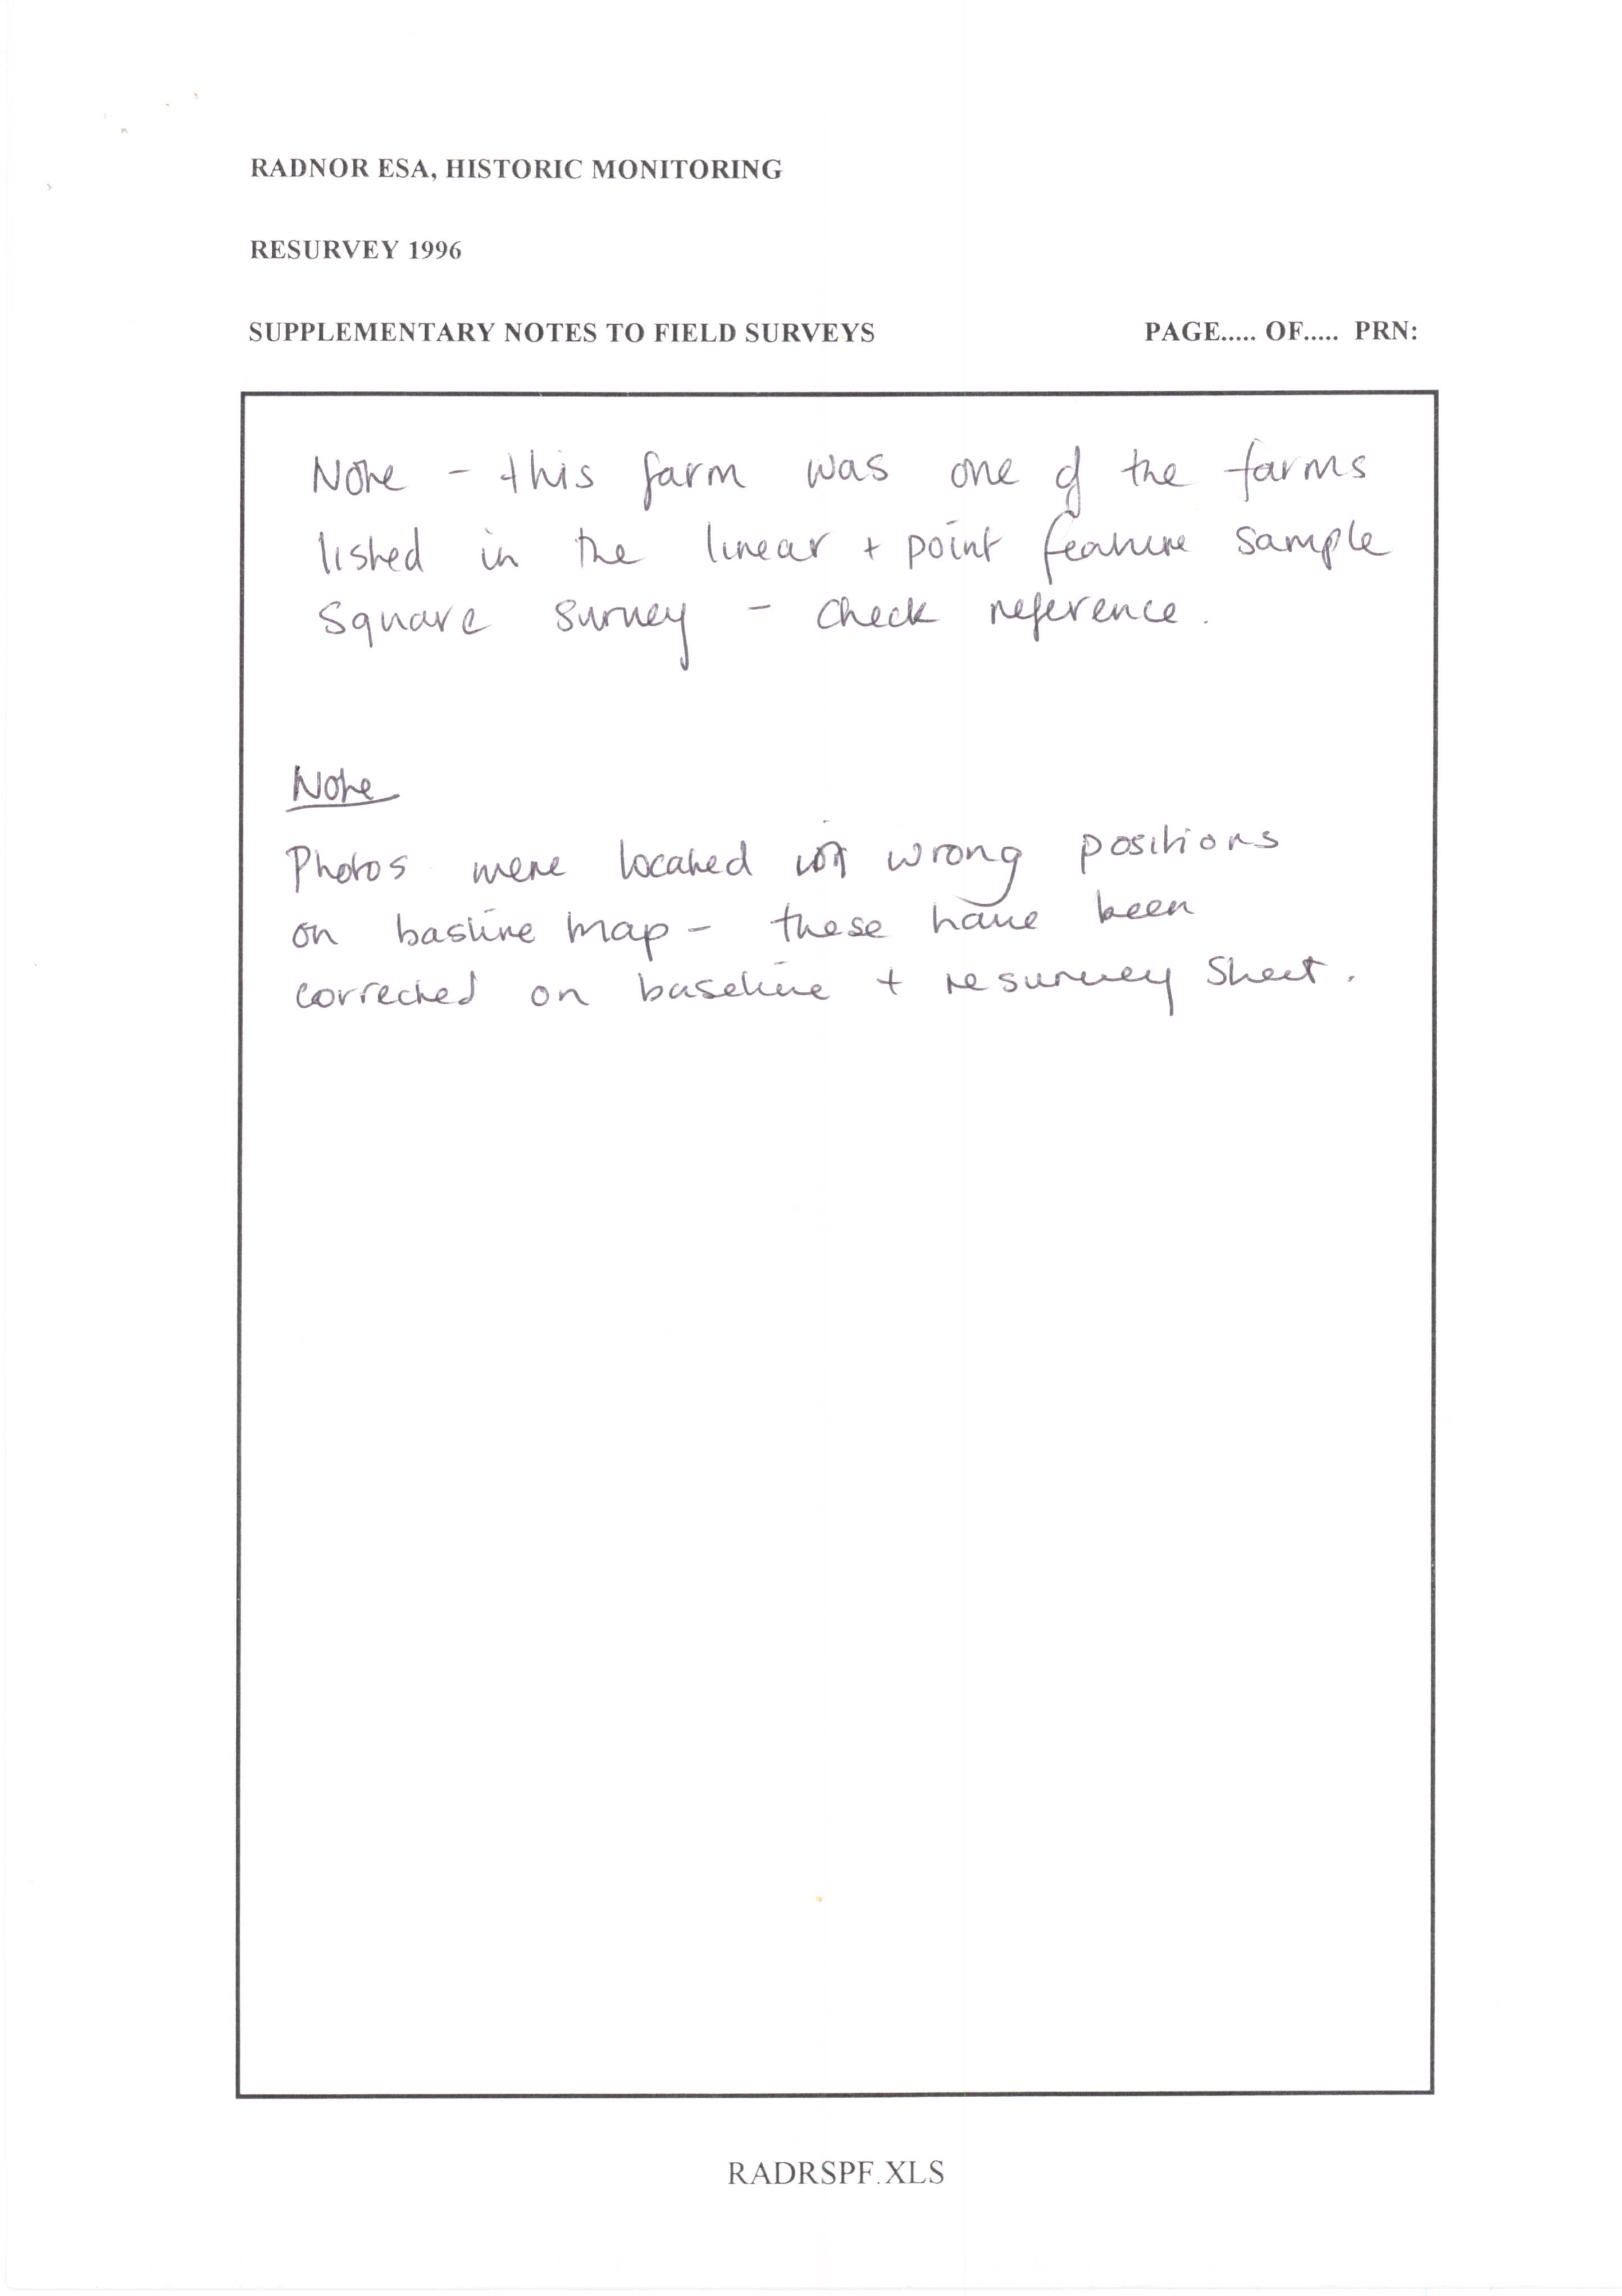 RADNOR ESA, HISTORIC MONITORING
RESURVEY 1996
SUPPLEMENTARY NOTES TO FIELD SURVEYS PAGE..... OF..... PRN:
Note - this farm was one of the farms
listed in the linear + point feature sample
square survey - check reference.
Note
Photos were located in wrong positions
on basline map - these have been
corrected on baseline + resurvey sheet.
RADRSPF.XLS